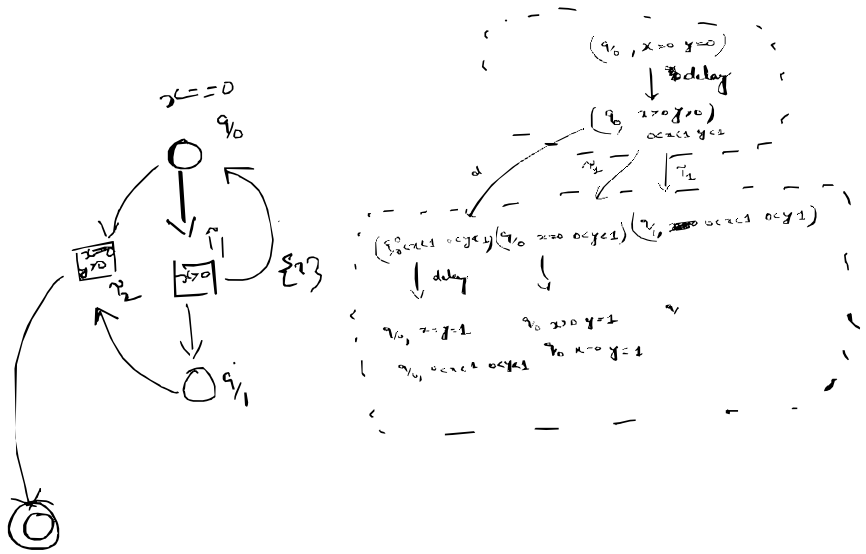 x==0
q0
x=0
y>0
τ2
τ1
x>0
{x}
q1
(q0, x=0 y=0)
delay
(q0 x>0 y>0)
0<x<1 y<1
d
τ1
τ1
(q0 0<x<1 0<y<1) (q0 x=0 0<y<1) (q1, 0<x<1 0<y<1)
delay
q0, x=y=1
q0 x>0 y=1
q0, 0<x<1 0<y<1
q0 x=0 y=1